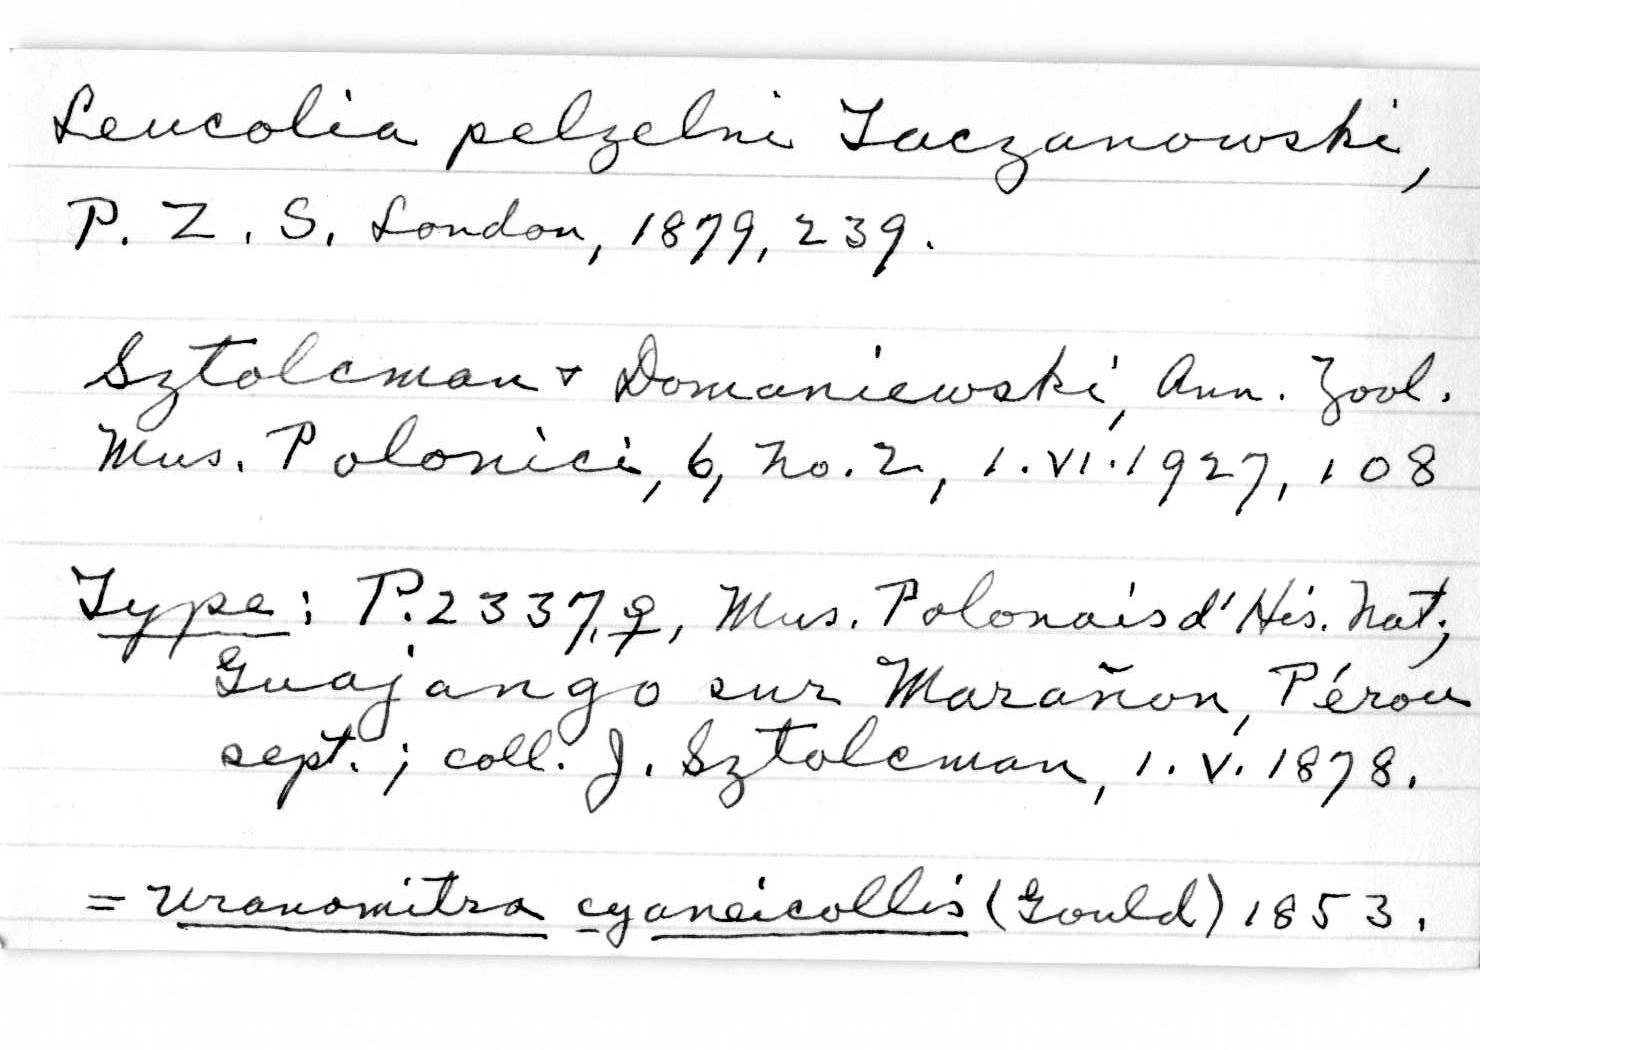 Leucolia pelzelni Taczanowski,
P. Z. S. London, 1879, 239.
Sztolcman & Domaniewski, Ann. Zool.
Mus. Polonici, 6, No. 2, 1.VI.1927, 108
Type: P.2337, ♀, Mus. Polonais d'His. Nat;
Guajango sur Marañon, Pérou
sept.; coll. J. Sztolcman, 1.V.1878.
= Uranomitra cyaneicollis (Gould) 1853.